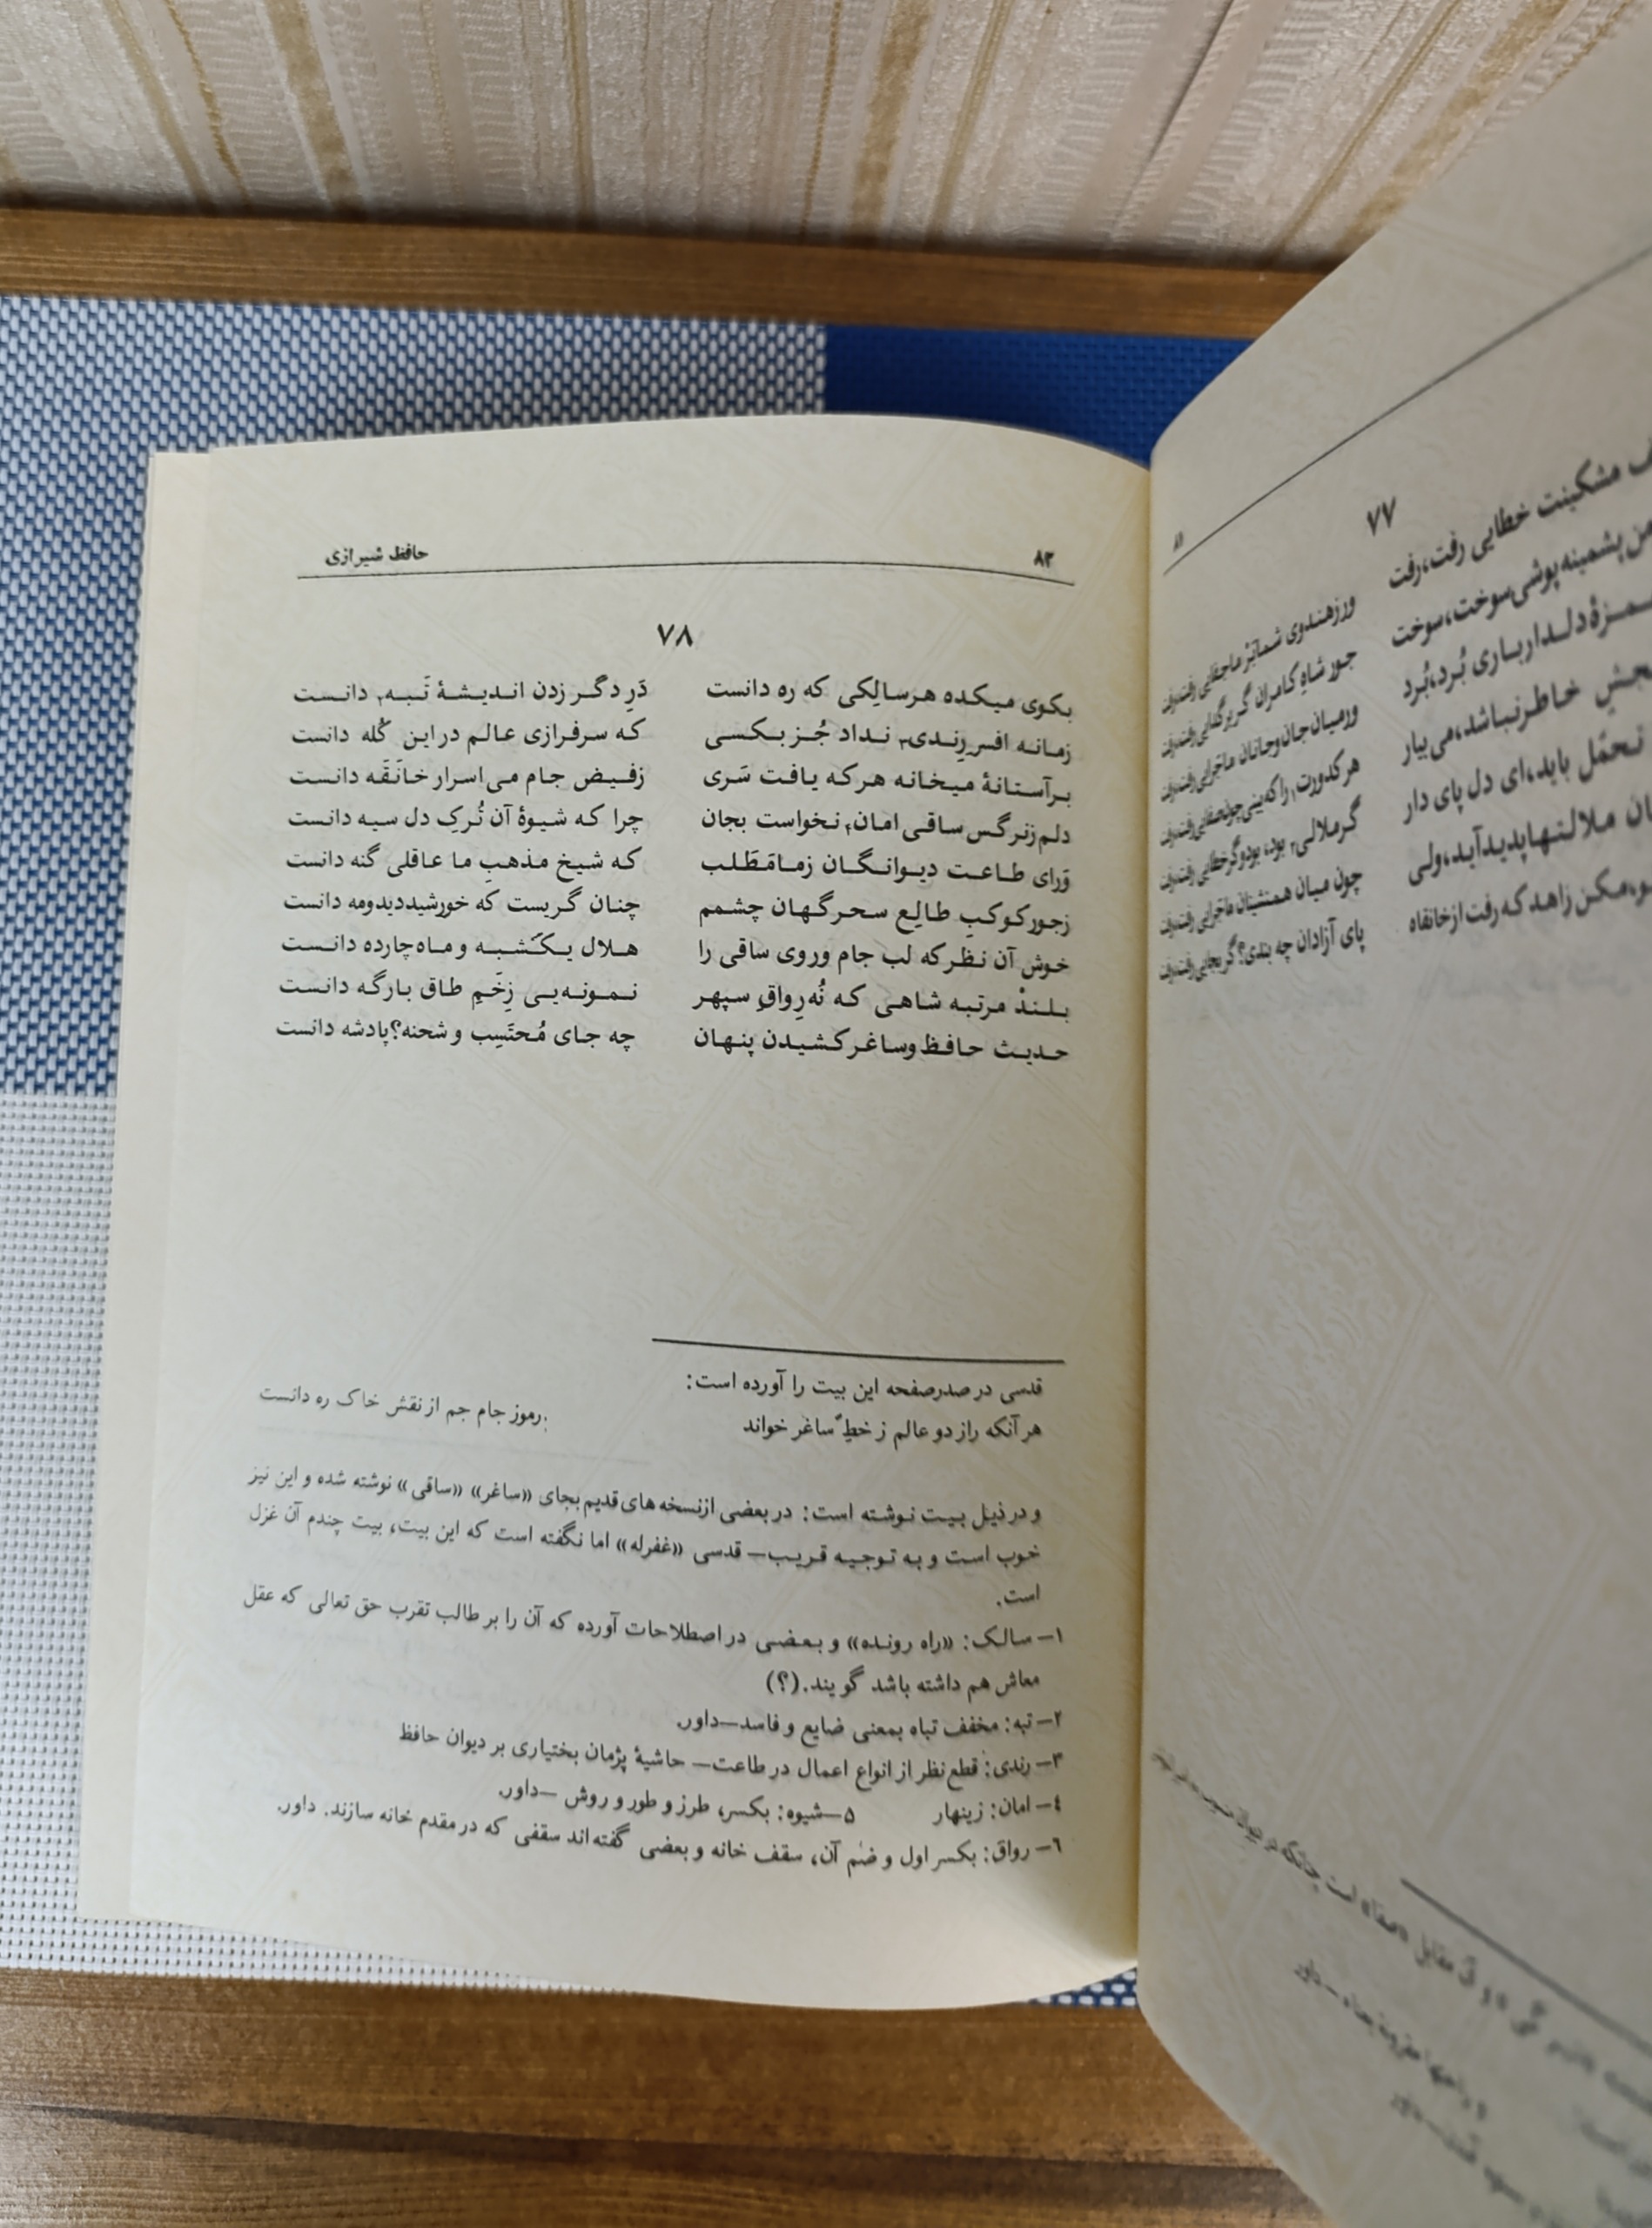 ۸۲ حافظ شیرازی
۷۸
بکوی میکده هر سالِکی که ره دانست دَرِ دگر زدن اندیشهٔ تَبه۲ دانست
زمانه افسر رِندی۳ نداد جُز بکسی که سرفرازی عالم در این کُله دانست
برآستانهٔ میخانه هر که یافت سَری زفیض جام می اسرار خانَقَه دانست
دلم زنرگس ساقی امان۴ نخواست بجان چرا که شیوهٔ آن تُرکِ دل سیه دانست
وَرای طاعت دیوانگان زما مَطَلب که شیخ مذهبِ ما عاقلی گنه دانست
زجور کوکبِ طالِع سحرگهان چشمم چنان گریست که خورشید دید و مه دانست
خوش آن نظر که لب جام و روی ساقی را هلال یکشبه و ماه چارده دانست
بلندْ مرتبه شاهی که نُه رِواقِ سپهر نمونه‌یی زِخَمِ طاق بارگه دانست
حدیث حافظ و ساغر کشیدن پنهان چه جای مُحتَسِب و شحنه؟ پادشه دانست
قدسی در صدر صفحه این بیت را آورده است:
هر آنکه راز دو عالم ز خطِ ساغر خواند رموز جام جم از نقش خاک ره دانست
و در ذیل بیت نوشته است: در بعضی از نسخه های قدیم بجای «ساغر» «ساقی» نوشته شده و این نیز
خوب است و به توجیه قریب— قدسی «غفرله» اما نگفته است که این بیت، بیت چندم آن غزل
است.
۱— سالک: «راه رونده» و بعضی در اصطلاحات آورده که آن را بر طالب تقرب حق تعالی که عقل
معاش هم داشته باشد گویند.(؟)
۲— تبه: مخفف تباه بمعنی ضایع و فاسد—داور.
۳— رندی: قطع نظر از انواع اعمال در طاعت— حاشیهٔ پژمان بختیاری بر دیوان حافظ
٤— امان: زینهار ۵—شیوه: بکسر، طرز و طور و روش —داور.
٦— رواق: بکسر اول و ضم آن، سقف خانه و بعضی گفته‌اند سقفی که در مقدم خانه سازند. داور.
۷۷
مشکینت خطایی رفت، رفت ور زهندوی شما بر ما جفایی رفت، رفت
پشمینه پوشی سوخت، سوخت جور شاهِ کامران گر بر گدایی رفت، رفت
دلدار باری بُرد، بُرد ور میان جان و جانان ماجرایی رفت، رفت
خاطر نباشد، می بیار هر کدورت را که بینی چون صفایی رفت، رفت
تحمّل باید، ای دل پای دار گر ملالی بود، بود و گر خطایی رفت، رفت
ملالتها پدید آید، ولی چون میان همنشینان ماجرایی رفت، رفت
مکن زاهد که رفت از خانقاه پای آزادان چه بندی؟ گر بجایی رفت، رفت